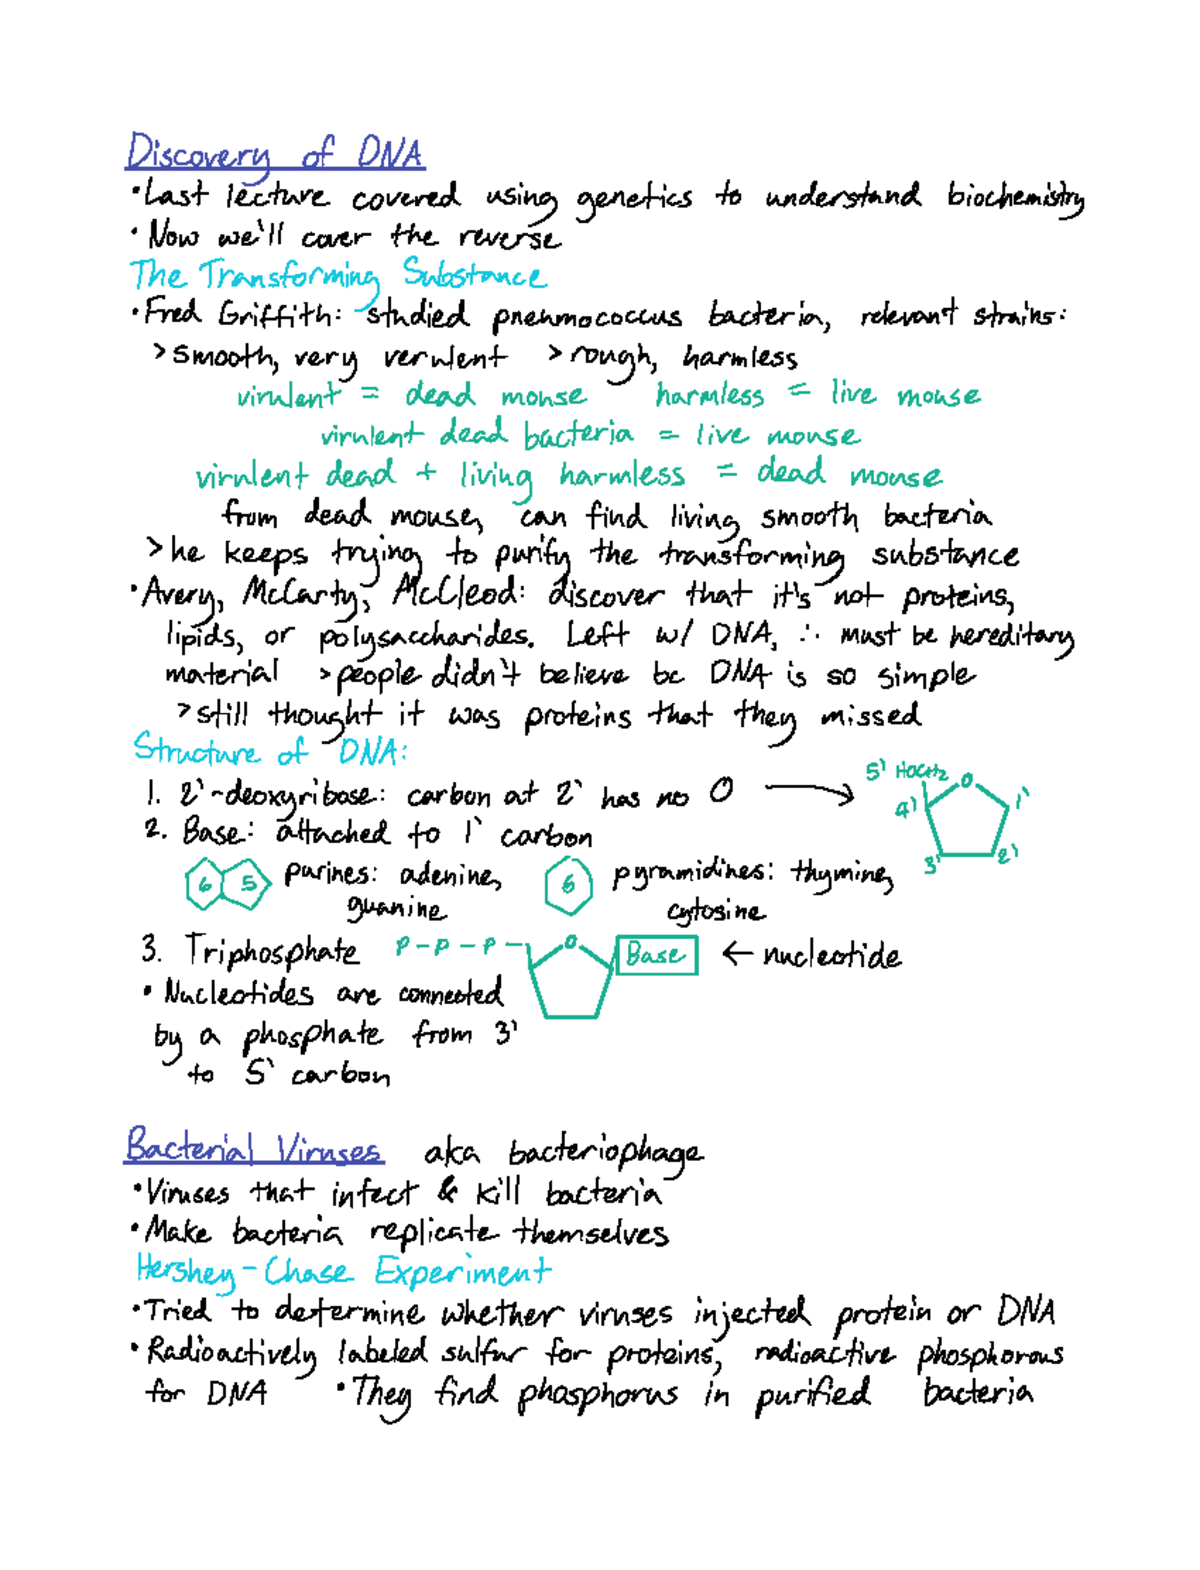 Discovery of DNA
• Last lecture covered using genetics to understand biochemistry
• Now we'll cover the reverse
The Transforming Substance
• Fred Griffith: studied pneumococcus bacteria, relevant strains:
> smooth, very verulent > rough, harmless
virulent = dead mouse harmless = live mouse
virulent dead bacteria = live mouse
virulent dead + living harmless = dead mouse
from dead mouse, can find living smooth bacteria
> he keeps trying to purify the transforming substance
• Avery, McCarty, McCleod: discover that it's not proteins,
lipids, or polysaccharides. Left w/ DNA, ∴ must be hereditary
material > people didn't believe bc DNA is so simple
> still thought it was proteins that they missed
Structure of DNA:
5' HOCH2 O
1. 2'-deoxyribose: carbon at 2' has no O →
4' 1'
2. Base: attached to 1' carbon
3' 2'
6 5 purines: adenine, 6 pyramidines: thymine,
guanine cytosine
3. Triphosphate P-P-P- O Base ← nucleotide
• Nucleotides are connected
by a phosphate from 3'
to 5' carbon
Bacterial Viruses aka bacteriophage
• Viruses that infect & kill bacteria
• Make bacteria replicate themselves
Hershey-Chase Experiment
• Tried to determine whether viruses injected protein or DNA
• Radioactively labeled sulfur for proteins, radioactive phosphorous
for DNA • They find phosphorus in purified bacteria